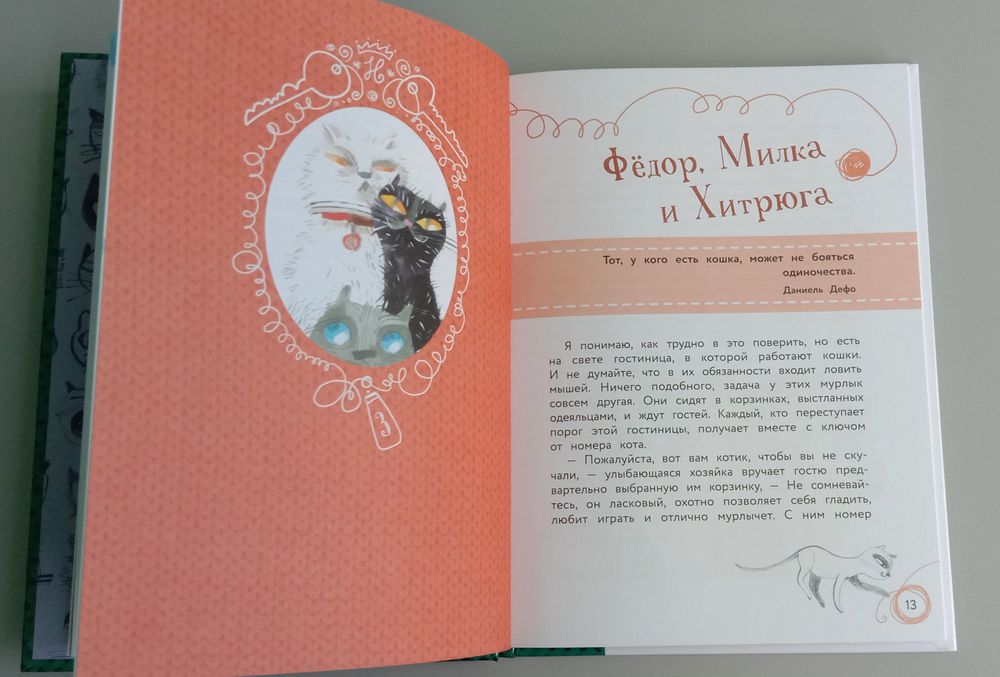 Н
3
Фёдор, Милка
и Хитрюга
Тот, у кого есть кошка, может не бояться
одиночества.
Даниель Дефо
Я понимаю, как трудно в это поверить, но есть
на свете гостиница, в которой работают кошки.
И не думайте, что в их обязанности входит ловить
мышей. Ничего подобного, задача у этих мурлык
совсем другая. Они сидят в корзинках, выстланных
одеяльцами, и ждут гостей. Каждый, кто переступает
порог этой гостиницы, получает вместе с ключом
от номера кота.
— Пожалуйста, вот вам котик, чтобы вы не ску-
чали, — улыбающаяся хозяйка вручает гостю пред-
варительно выбранную им корзинку, — Не сомневай-
тесь, он ласковый, охотно позволяет себя гладить,
любит играть и отлично мурлычет. С ним номер
13